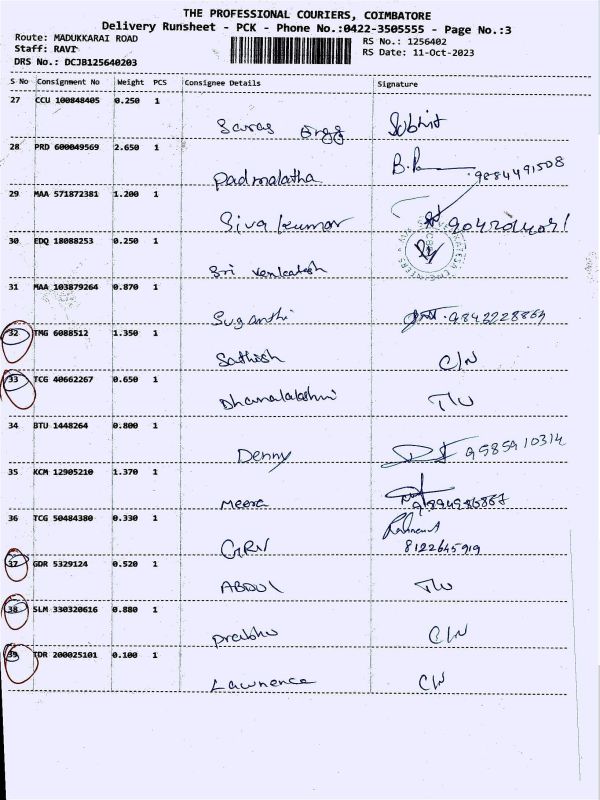 THE PROFESSIONAL COURIERS, COIMBATORE
Delivery Runsheet - PCK - Phone No.:0422-3505555 - Page No.:3
Route: MADUKKARAI ROAD
RS No.: 1256402
Staff: RAVI
RS Date: 11-Oct-2023
DRS No.: DCJB125640203
S No Consignment No Weight PCS Consignee Details Signature
27 CCU 100848405 0.250 1
Saras Engg
28 PRD 600049569 2.650 1
Padmalatha 9884491508
29 MAA 571872381 1.200 1
Siva kumar
30 EDQ 18088253 0.250 1
Sri Venkatesh
31 MAA 103879264 0.870 1
Suganthi 9842228864
32 TMG 6088512 1.350 1
Sathish C/N
33 TCG 40662267 0.650 1
Dhanalakshmi
34 BTU 1448264 0.800 1
Denny 9585910314
35 KCM 12905210 1.370 1
Meera
36 TCG 50484380 0.330 1
GRN 8122645919
37 GDR 5329124 0.520 1
ABDUL
38 SLM 330320616 0.880 1
Prabhu C/N
39 TDR 200025101 0.100 1
Lawrence C/N